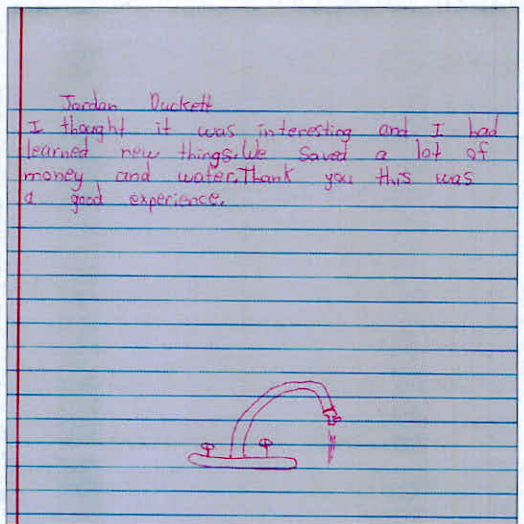 Jordan Duckett
I thought it was interesting and I had
learned new things. We saved a lot of
money and water. Thank you this was
a good experience.